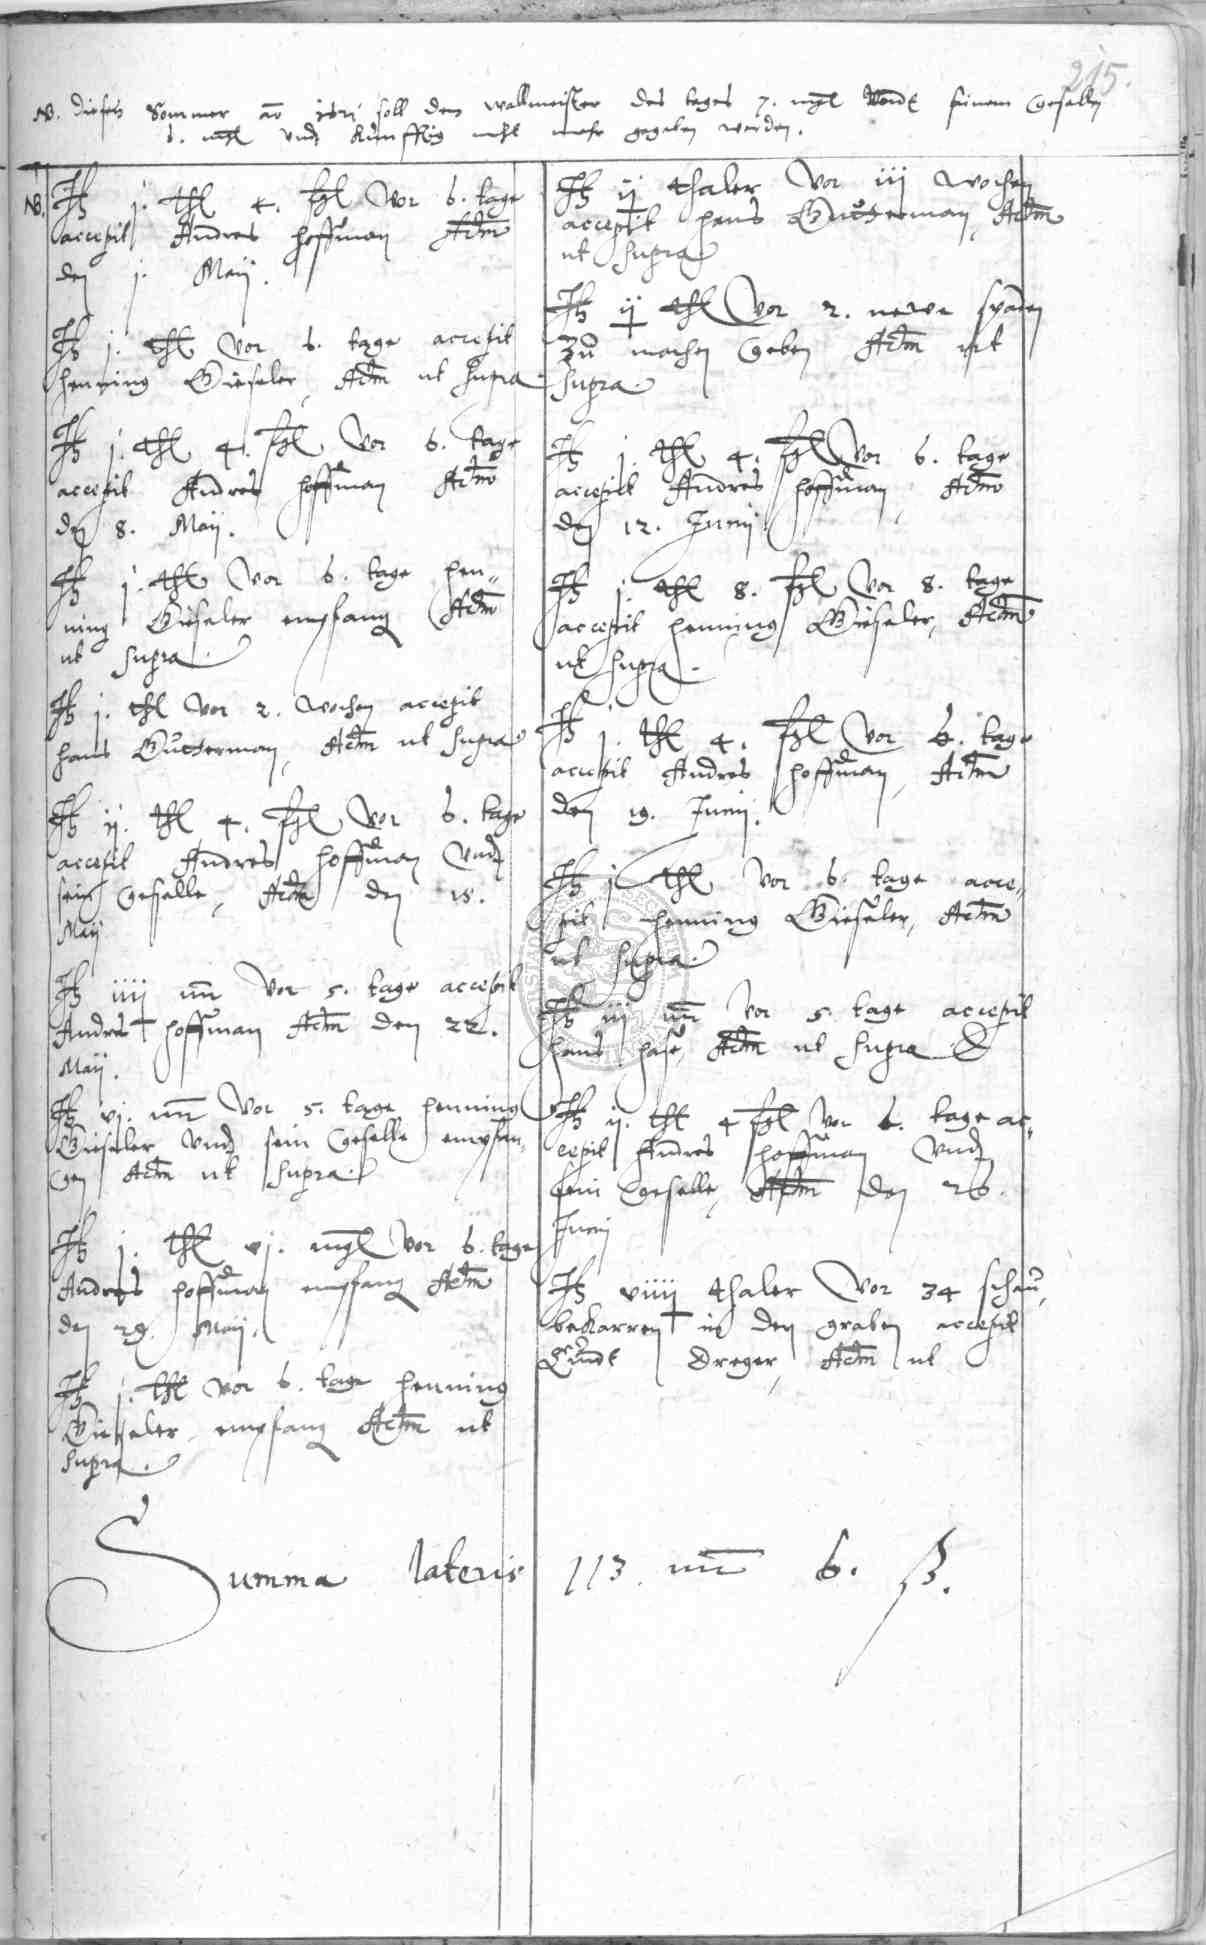 215.
NB. Diesen Sommer aō soll dem wallmeister des tages 7. mgl Vndt seinem Gesellen
6. mgl vnd künfftig nicht mehr gegeben werden.
NB. It j. thl 4. fgl Vor 6. tage
accepit Andres Hoffman Actm
den j. Maij.
It j. thl Vor 6. tage accepit
Henning Gieseler, Actm ut supra.
It j. thl 4. fgl Vor 6. tage
accepit Andres Hoffman Actm
den 8. Maij.
It j. thl Vor 6. tage Hen„
ning Gieseler empfang Actm
ut supra.
It j. thl Vor 2. Wochen accepit
Hans Actm ut supra
It ij. thl 4. fgl Vor 6. tage
accepit Andres Hoffman Vnd
sein Geselle, Actm den 15.
Maij
It iiij mr Vor 5. tage accepit
Andres Hoffman Actm den 22.
Maij.
It vj. mr Vor 5. tage Henning
Gieseler Vnd sein Geselle empfan„
gen Actm ut supra.
It j. thl vj. mgl Vor 6. tage
Andres Hoffman empfang Actm
den 29. Maij.
It j. thl vor 6. tage Henning
Gieseler empfang Actm ut
supra.
It ij thaler Vor iij Wochen
accepit Hans Actm
ut supra
It ij thl Vor 2. newe spaden
zu machen Geben Actm ut
supra.
It j. thl 4. fgl Vor 6. tage
accepit Andres Hoffman, Actm
den 12. Junij
It j. thl 8. fgl Vor 8. tage
accepit Henning Gieseler, Actm
ut supra.
It j. thl 4. fgl Vor 6. tage
accepit Andres Hoffman, Actm
den 19. Junij.
It j thl Vor 6. tage acce„
pit Henning Gieseler, Actm
ut supra.
It iij mr Vor 5. tage accepit
Hans Hase, Actm ut supra
It ij. thl 4 fgl Vor 6. tage ac„
cepit Andres Hoffman Vnd
sein Geselle, Actm den 26.
Junij
It viiij thaler Vor 34 schau„
bekarren in den graben accepit
Dreger, Actm ut
Summa lateris 113. mr 6. ß.